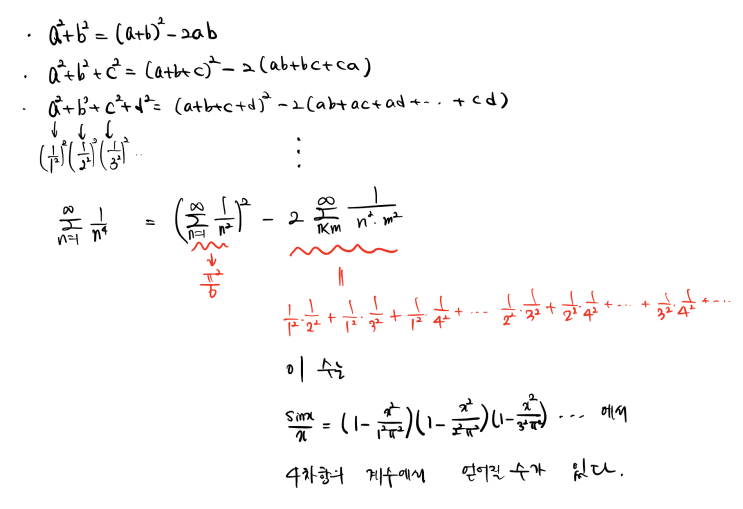 · a²+b² = (a+b)² - 2ab
· a²+b²+c² = (a+b+c)² - 2(ab+bc+ca)
· a²+b²+c²+d² = (a+b+c+d)² - 2(ab+ac+ad+··· + cd)
↓ ↓ ↓
(1/1²)² (1/2²)² (1/3²)² ··· ⋮
∞∑n=1 1/n⁴ = (∞∑n=1 1/n²)² - 2 ∞∑n<m 1/n²·m²
↓ ||
π²/6
1/1²·1/2² + 1/1²·1/3² + 1/1²·1/4² + ··· 1/2²·1/3² + 1/2²·1/4² + ··· + 1/3²·1/4² + ···
이 수는
sinx/x = (1 - x²/1²π²)(1 - x²/2²π²)(1 - x²/3²π²) ··· 에서
4차항의 계수에서 얻어질 수가 있다.